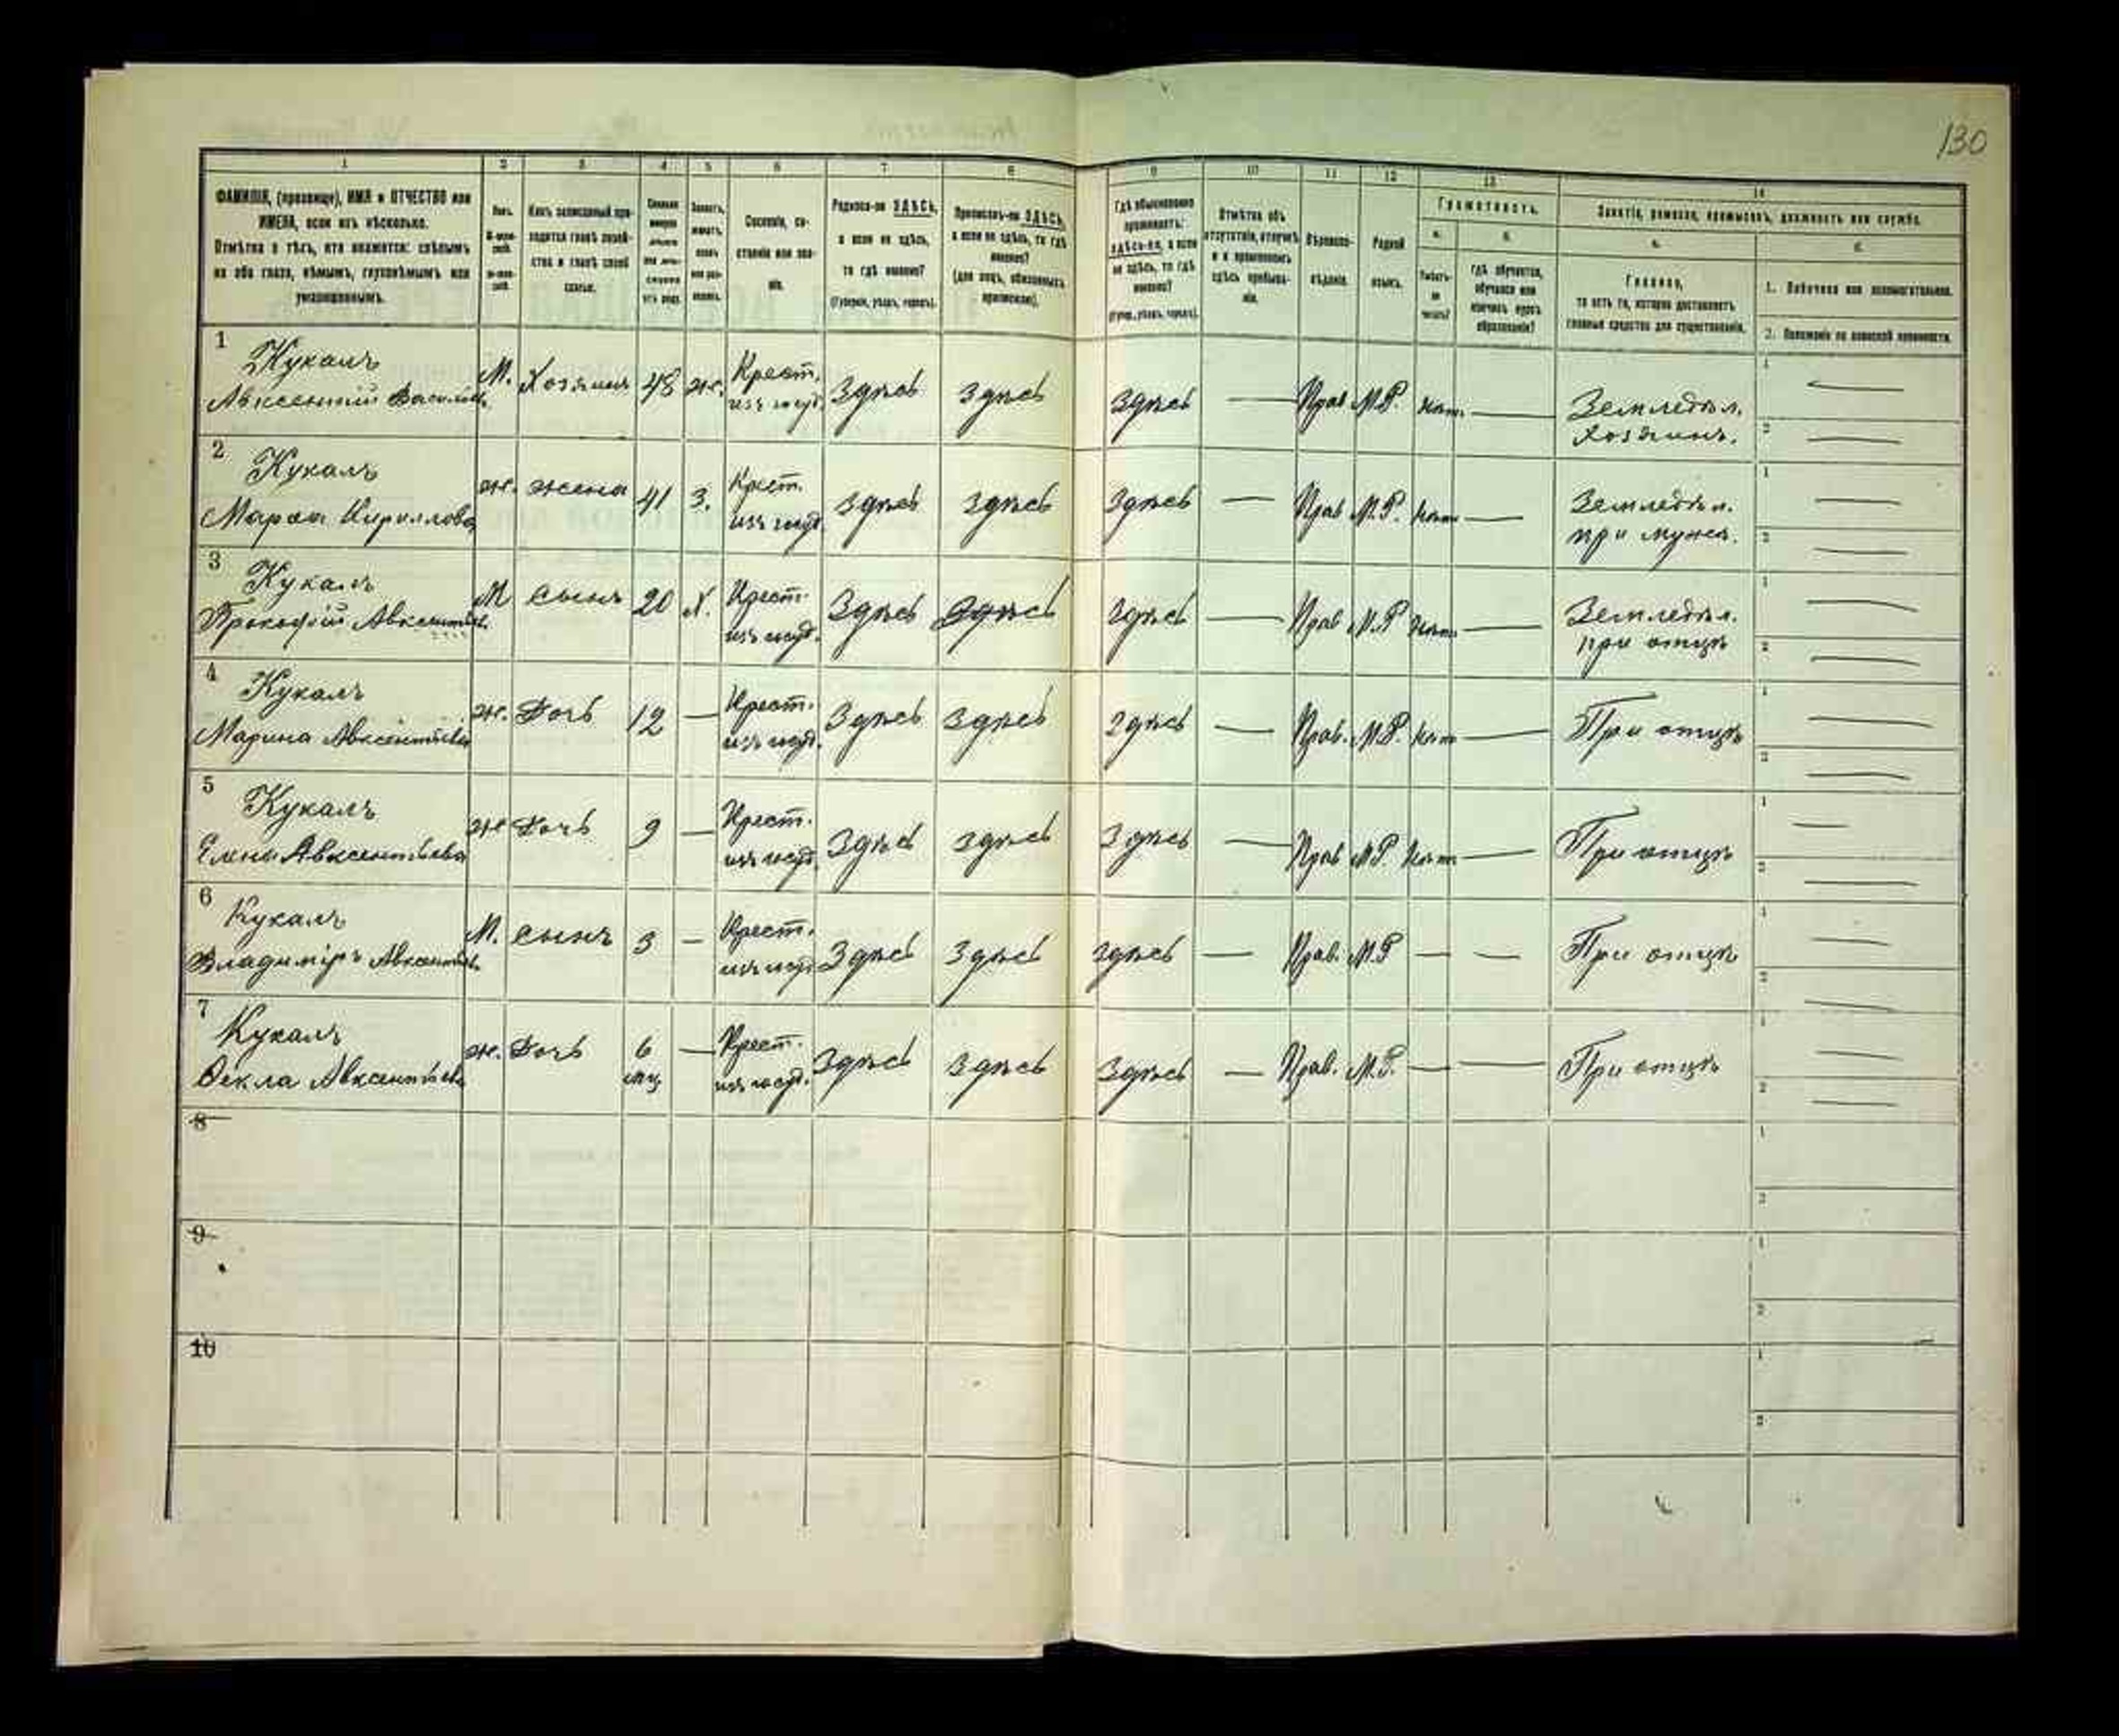 130
1 2 3 4 5 6 7 8 9 10 11 12 13 14
ФАМИЛІЯ, (прозвище), ИМЯ и ОТЧЕСТВО или
ИМЕНА, если ихъ нѣсколько.
Отмѣтка о тѣхъ, кто окажется: слѣпымъ
на оба глаза, нѣмымъ, глухонѣмымъ или
умалишеннымъ.
Полъ.
Какъ записанный при-
ходится главѣ хозяй-
ства и главѣ своей
семьи.
Сословіе, со-
стояніе или зва-
ніе.
Родился-ли ЗДѢСЬ,
а если не здѣсь,
то гдѣ именно?
(Губернія, уѣздъ, городъ).
Приписанъ-ли ЗДѢСЬ,
а если не здѣсь, то гдѣ
именно?
(для лицъ, обязанныхъ
припискою).
Гдѣ обыкновенно
проживаетъ:
здѣсь-ли, а если
не здѣсь, то гдѣ
именно?
(Губер., уѣздъ, городъ).
Отмѣтка объ
отсутствіи, отлучкѣ
и о временномъ
здѣсь пребыва-
ніи.
Вѣроиспо-
вѣданіе.
Родной
языкъ.
Грамотность.
а. б.
Умѣетъ-
ли
читать?
гдѣ обучается,
обучался или
кончилъ курсъ
образованія?
Занятіе, ремесло, промыселъ, должность или служба.
а. б.
Главное,
то есть то, которое доставляетъ
главныя средства для существованія.
1. Побочное или вспомогательное.
2. Положеніе по воинской повинности.
1 Кукалъ
Авксентій Васильев.
М. Хозяинъ 48 ж. Крест. изъ госуд. Здѣсь Здѣсь Здѣсь — Прав М.Р. нѣт — Земледѣл. хозяинъ. 1 — 2 —
2 Кукалъ
Марѳа Кириллова
ж. жена 41 З. Крест. изъ госуд. Здѣсь Здѣсь Здѣсь — Прав М.Р. нѣт — Земледѣл. при мужѣ. 1 — 2 —
3 Кукалъ
Прокофій Авксентьев.
М сынъ 20 Х. Крест. изъ госуд. Здѣсь Здѣсь Здѣсь — Прав М.Р нѣт — Земледѣл. при отцѣ 1 — 2 —
4 Кукалъ
Марина Авксентіева
ж. Дочь 12 — Крест. изъ госуд. Здѣсь Здѣсь Здѣсь — Прав. М.Р. нѣт — При отцѣ 1 — 2 —
5 Кукалъ
Елена Авксентьева
ж Дочь 9 — Крест. изъ госуд. Здѣсь Здѣсь Здѣсь — Прав М.Р. нѣт — При отцѣ 1 — 2 —
6 Кукалъ
Владиміръ Авксентьев.
М. сынъ 3 — Крест. изъ госуд. Здѣсь Здѣсь Здѣсь — Прав. М.Р — — При отцѣ 1 — 2 —
7 Кукалъ
Ѳекла Авксентьева
ж. Дочь 6 мц — Крест. изъ госуд. Здѣсь Здѣсь Здѣсь — Прав. М.Р. — — При отцѣ 1 — 2 —
8 1 2
9 1 2
10 1 2